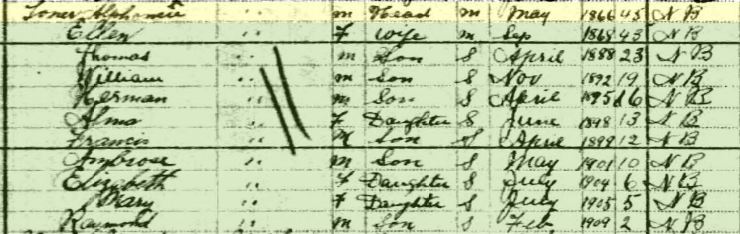 Toner Alphonse m Head m May 1866 45 N B
Ellen " F Wife m Sep 1868 43 N B
Thomas " m Son S April 1888 23 N B
William " m Son S Nov 1892 19 N B
Herman " m Son S April 1895 16 N B
Alma " F Daughter S June 1898 13 N B
Francis " M Son S April 1899 12 N B
Ambrose " m Son S May 1901 10 N B
Elizabeth " F Daughter S July 1904 6 N B
Mary " F Daughter S July 1905 5 N B
Raymond " m Son S Feb 1909 2 N B